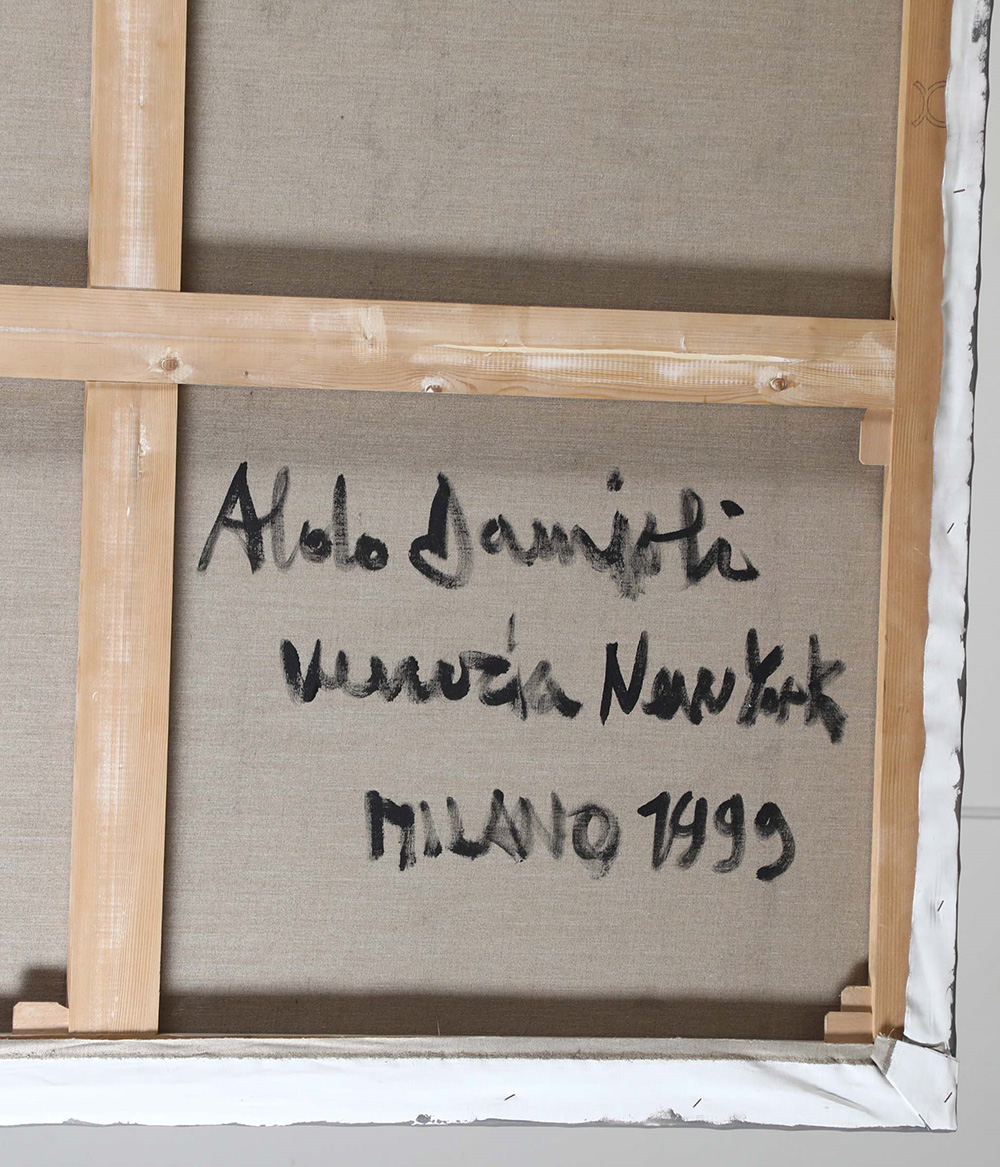 Aldo Damioli
Venezia New York
MILANO 1999